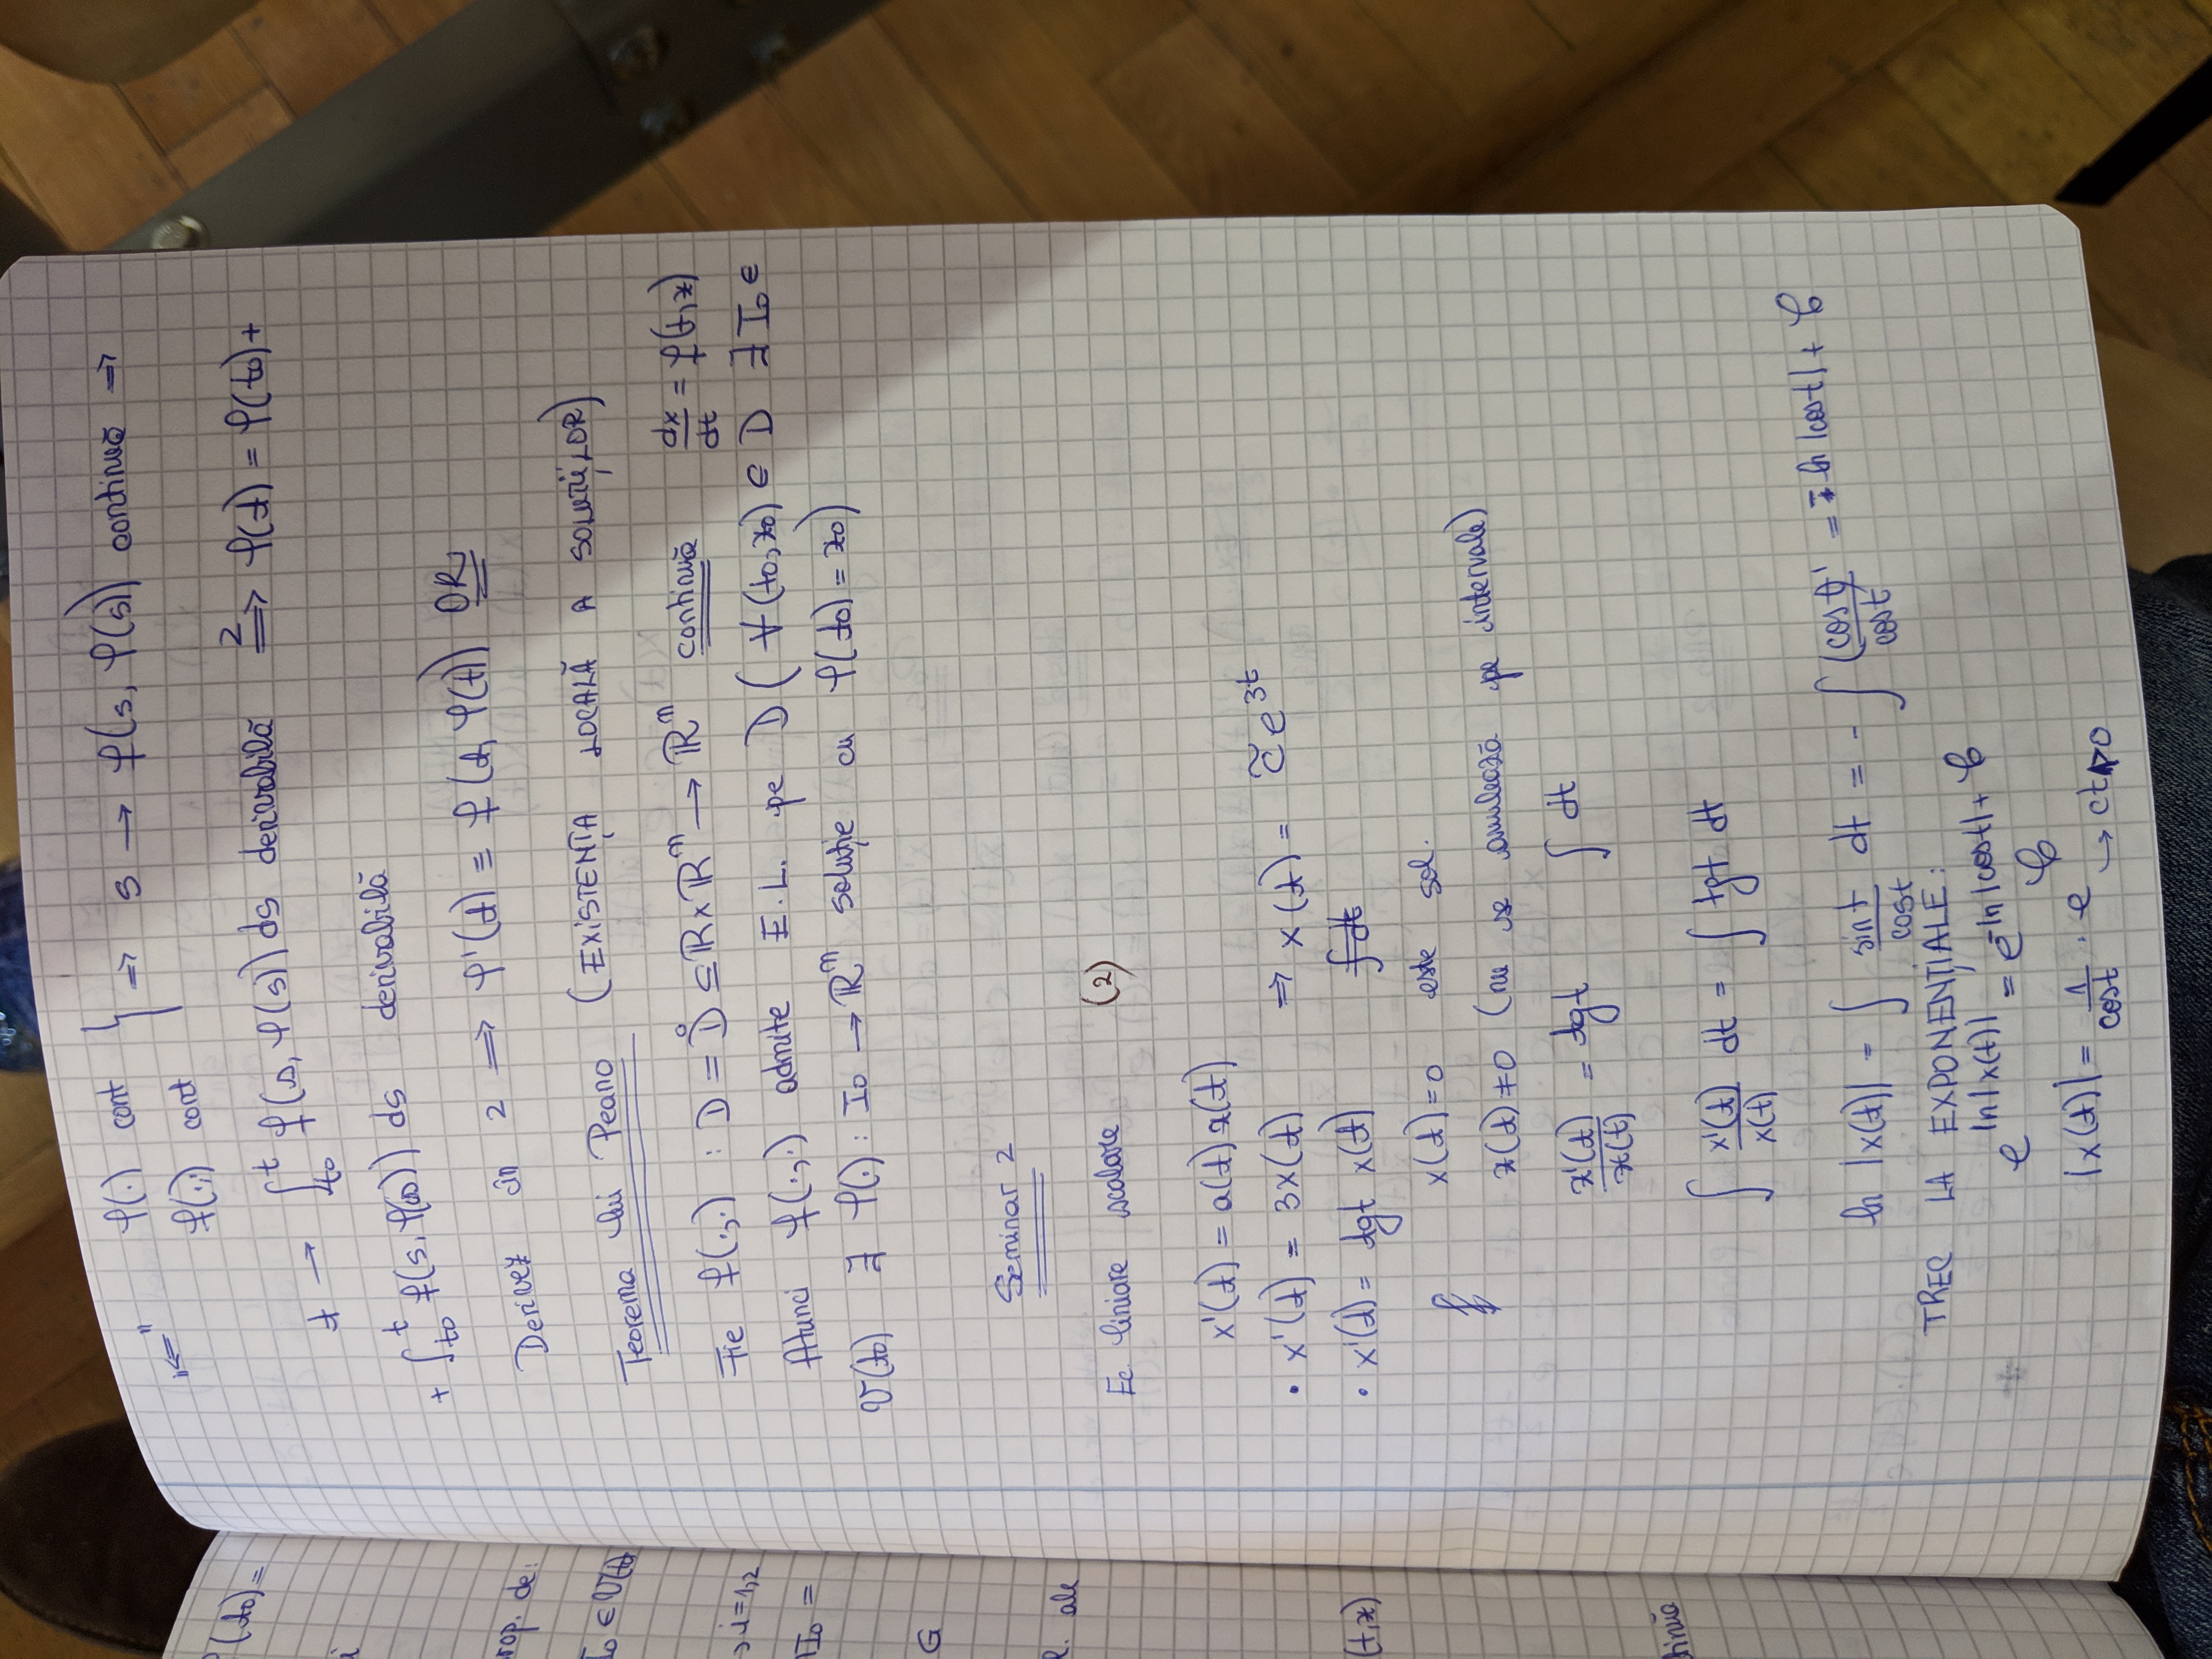 φ(t0) =
i
prop. de:
I0 ∈ V(t0)
, i = 1,2
∩I0 =
G
R. ale
(t,x)
tinuă
„⇐" φ(.) cont } ⇒ s → f(s, φ(s)) continuă ⇒
f(.,.) cont
t → ∫_{t0}^{t} f(s, φ(s)) ds derivabilă ⇒(2) φ(t) = φ(t0) +
+ ∫_{t0}^{t} f(s, φ(s)) ds derivabilă
Derivez în 2 ⇒ φ'(t) ≡ f(t, φ(t)) OR
Teorema lui Peano (EXISTENȚA LOCALĂ A SOLUȚIILOR)
Fie f(.,.) : D = D̊ ⊆ ℝ×ℝⁿ → ℝⁿ continuă dx/dt = f(t,x)
Atunci f(.,.) admite E.L. pe D ( ∀ (t0,x0) ∈ D ∃ I0 ∈
V(t0) ∃ φ(.) : I0 → ℝⁿ soluție cu φ(t0) = x0)
Seminar 2
Ec. liniare scalare (2)
x'(t) = a(t) x(t)
• x'(t) = 3x(t) ⇒ x(t) = c̃ e^{3t}
• x'(t) = tgt x(t) ∫ dt
x(t) = 0 este sol.
x(t) ≠ 0 (nu se anulează pe intervale)
x'(t)/x(t) = tgt ∫ dt
∫ x'(t)/x(t) dt = ∫ tgt dt
ln |x(t)| = ∫ sint/cost dt = - ∫ (cost)'/cost = - ln |cost| + C
TREC LA EXPONENȚIALE:
e^{ln|x(t)|} = e^{-ln|cost| + C}
|x(t)| = 1/cost · e^C → ct > 0